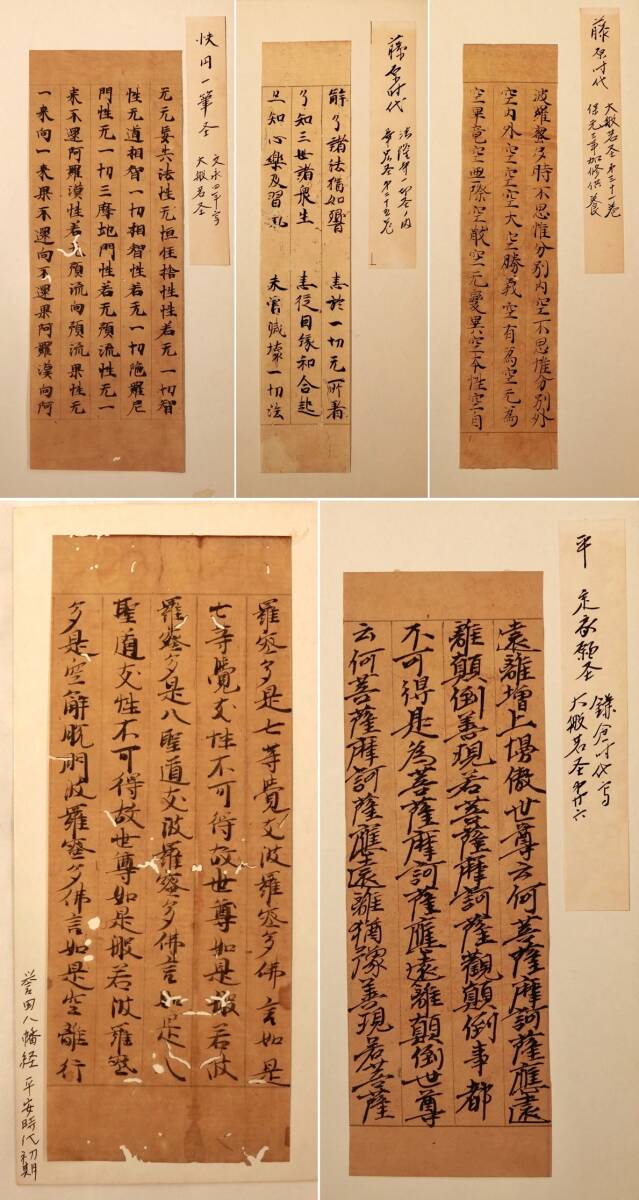 快円一筆圣
文永四年写
大般若圣
无无忘失法性无恒住捨性性若无一切智
性无道相智一切相智性若无一切陁羅尼
門性无一切三摩地門性若无預流性无一
来不還阿羅漢性若无預流向預流果性无
一来向一来果不還向不還果阿羅漢向阿
藤原时代
法隆寺一切圣ノ内
華厳圣第二十五巻
解了諸法猶如響 悉於一切无所着
了知三世諸衆生 悉従因縁和合起
亦知心樂及習氣 未曾滅壊一切法
藤原时代
大般若圣第三十一巻
保元三年加修供養
波羅蜜多時不思惟分別内空不思惟分別外
空内外空空空大空勝義空有為空无為
空畢竟空无際空散空无變異空本性空自
羅蜜多是七等覺支波羅蜜多佛言如是
七等覺支性不可得故世尊如是般若波
羅蜜多是八聖道支波羅蜜多佛言如是八
聖道支性不可得故世尊如是般若波羅蜜
多是空解脱門波羅蜜多佛言如是空離行
誉田八幡経 平安時代初期
平 定家願圣
鎌倉时代写
大般若圣
遠離增上慢傲世尊云何菩薩摩訶薩應遠
離顛倒善現若菩薩摩訶薩觀顛倒事都
不可得是為菩薩摩訶薩應遠離顛倒世尊
云何菩薩摩訶薩應遠離猶豫善現若菩薩